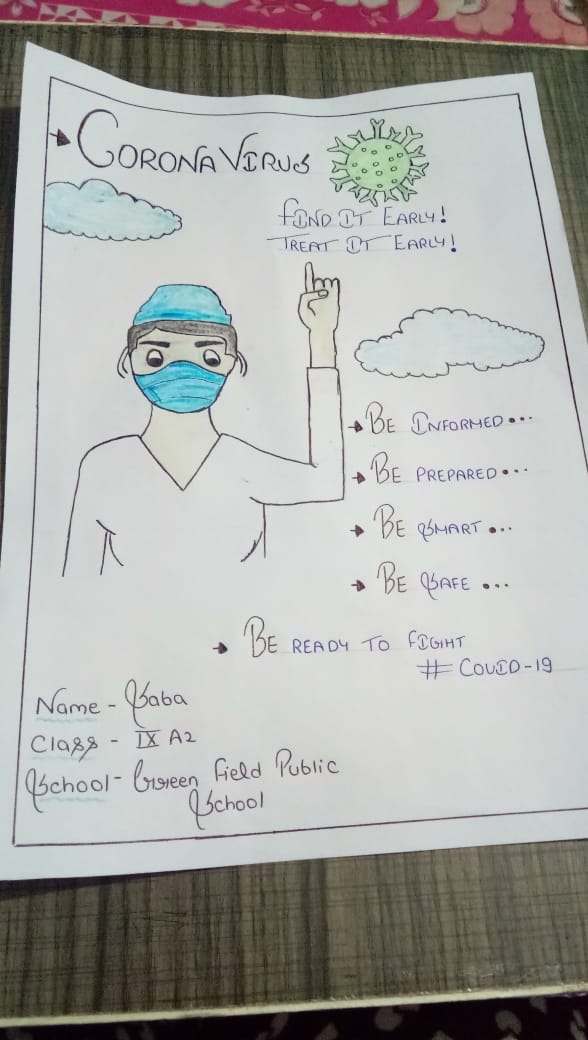 CORONA VIRUS
FIND IT EARLY!
TREAT IT EARLY!
BE INFORMED...
BE PREPARED...
BE SMART...
BE SAFE...
BE READY TO FIGHT
# COVID-19
Name - Saba
Class - IX A2
School - Green Field Public
School